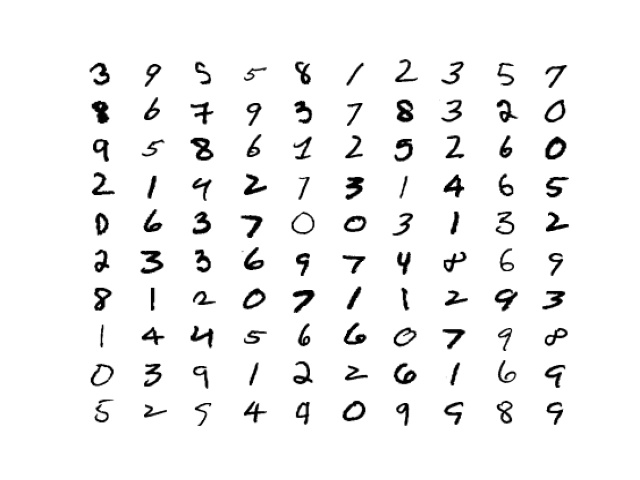 3 9 5 5 8 1 2 3 5 7
8 6 7 9 3 7 8 3 2 0
9 5 8 6 1 2 5 2 6 0
2 1 4 2 7 3 1 4 6 5
0 6 3 7 0 0 3 1 3 2
2 3 3 6 9 7 4 8 6 9
8 1 2 0 7 1 1 2 9 3
1 4 4 5 6 6 0 7 9 8
0 3 9 1 2 2 6 1 6 9
5 2 5 4 9 0 9 9 8 9